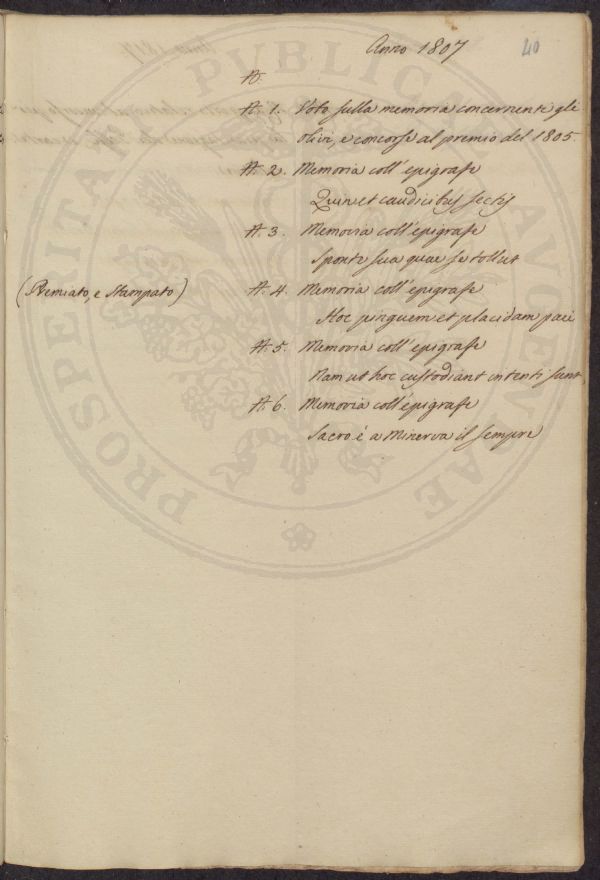 Anno 1807
40
A.
A. 1. Voto sulla memoria concernente gli
olivi, e concorse al premio del 1805.
A. 2. Memoria coll' epigrafe
Quin et caudicibus sectis
A. 3. Memoria coll' epigrafe
Sponte sua quae se tollut
(Premiato, e Stampato) A. 4. Memoria coll' epigrafe
Hoc pinguem et placidam paci
A. 5. Memoria coll' epigrafe
Nam ut hoc custodiant intenti sunt
A. 6. Memoria coll' epigrafe
Sacro è a Minerva il sempre
PUBLICA PROSPERITAS AVOE